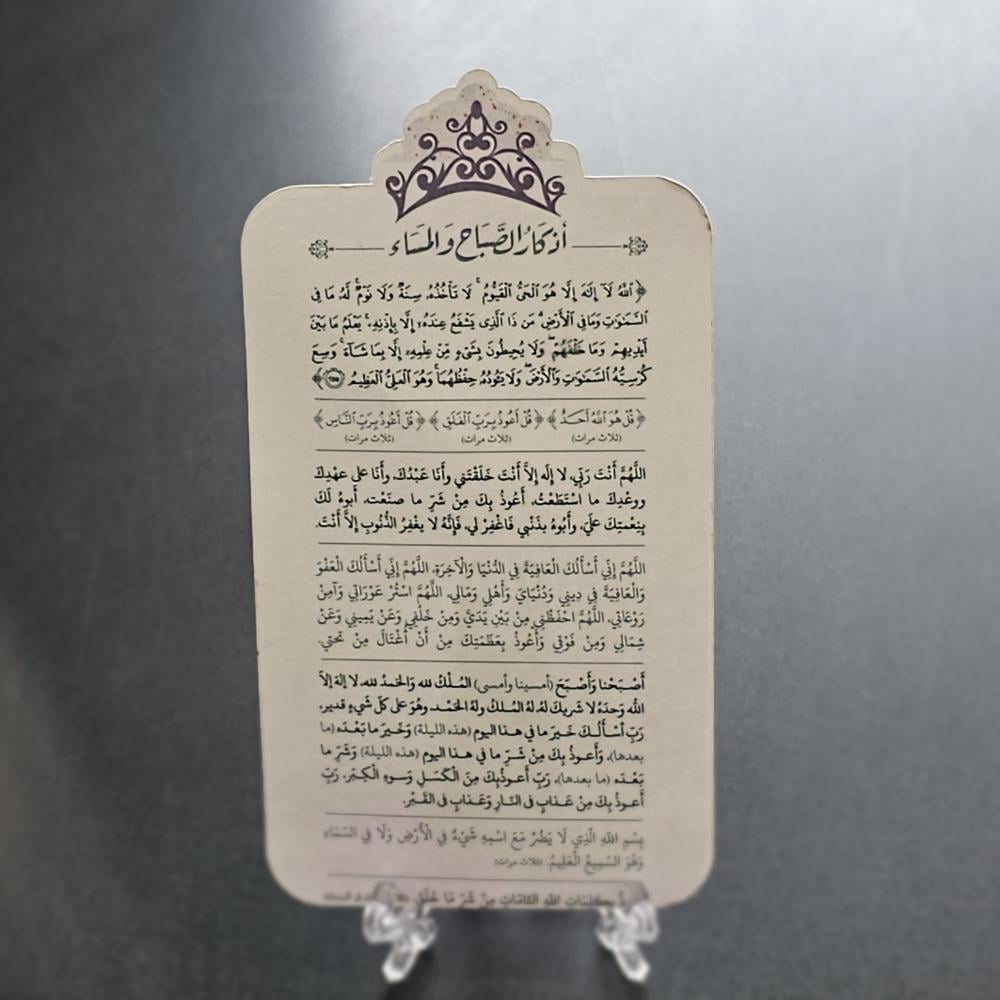 أذكار الصَّبَاح وَالمَسَاء
﴿اللَّهُ لَا إِلَٰهَ إِلَّا هُوَ الْحَيُّ الْقَيُّومُ ۚ لَا تَأْخُذُهُ سِنَةٌ وَلَا نَوْمٌ ۚ لَهُ مَا فِي
السَّمَاوَاتِ وَمَا فِي الْأَرْضِ ۗ مَن ذَا الَّذِي يَشْفَعُ عِندَهُ إِلَّا بِإِذْنِهِ ۚ يَعْلَمُ مَا بَيْنَ
أَيْدِيهِمْ وَمَا خَلْفَهُمْ ۖ وَلَا يُحِيطُونَ بِشَيْءٍ مِّنْ عِلْمِهِ إِلَّا بِمَا شَاءَ ۚ وَسِعَ
كُرْسِيُّهُ السَّمَاوَاتِ وَالْأَرْضَ ۖ وَلَا يَئُودُهُ حِفْظُهُمَا ۚ وَهُوَ الْعَلِيُّ الْعَظِيمُ ٢٥٥﴾
﴿قُلْ هُوَ اللَّهُ أَحَدٌ﴾ ﴿قُلْ أَعُوذُ بِرَبِّ الْفَلَقِ﴾ ﴿قُلْ أَعُوذُ بِرَبِّ النَّاسِ﴾
(ثلاث مرات) (ثلاث مرات) (ثلاث مرات)
اللَّهُمَّ أَنْتَ رَبِّي، لا إِلَه إِلاَّ أَنْتَ خَلَقْتَني وأَنَا عَبْدُكَ، وأَنَا على عهْدِكَ
ووعْدِكَ ما اسْتَطَعْتُ، أَعُوذُ بِكَ مِنْ شَرِّ ما صنَعْت، أَبوءُ لَكَ
بِنِعْمتِكَ علَيَّ، وأَبُوءُ بذَنْبي فَاغْفِرْ لي، فَإِنَّهُ لا يغْفِرُ الذُّنُوبَ إِلاَّ أَنْتَ.
اللَّهُمَّ إِنِّي أَسْأَلُكَ الْعَافِيَةَ فِي الدُّنْيَا وَالْآخِرَةِ، اللَّهُمَّ إِنِّي أَسْأَلُكَ الْعَفْوَ
وَالْعَافِيَةَ فِي دِينِي وَدُنْيَايَ وَأَهْلِي وَمَالِي، اللَّهُمَّ اسْتُرْ عَوْرَاتِي وَآمِنْ
رَوْعَاتِي، اللَّهُمَّ احْفَظْنِي مِنْ بَيْنِ يَدَيَّ وَمِنْ خَلْفِي وَعَنْ يَمِينِي وَعَنْ
شِمَالِي وَمِنْ فَوْقِي وَأَعُوذُ بِعَظَمَتِكَ مِنْ أَنْ أُغْتَالَ مِنْ تَحتِي.
أَصْبَحْنا وَأَصْبَحَ (أمسينا وأمسى) المُلْكُ لله وَالحَمدُ لله، لا إلهَ إلاّ
اللهُ وَحدَهُ لا شَريكَ لهُ، لهُ المُلكُ ولهُ الحَمْد، وهُوَ على كلّ شَيءٍ قدير،
رَبِّ أسْأَلُكَ خَيرَ ما في هذا اليوم (هذه الليلة) وَخَيرَ ما بَعْدَه (ما
بعدها)، وَأَعوذُ بِكَ مِنْ شَرِّ ما في هذا اليوم (هذه الليلة) وَشَرِّ ما
بَعْدَه (ما بعدها)، رَبِّ أَعوذُ بِكَ مِنَ الْكَسَلِ وَسوءِ الْكِبَر، رَبِّ
أَعوذُ بِكَ مِنْ عَذابٍ في النّارِ وَعَذابٍ في القَبْر.
بِسْمِ اللهِ الَّذِي لَا يَضُرُّ مَعَ اسْمِهِ شَيْءٌ فِي الْأَرْضِ وَلَا فِي السَّمَاءِ
وَهُوَ السَّمِيعُ الْعَلِيمُ. (ثلاث مرات)
بِكَلِمَاتِ اللهِ التَّامَّاتِ مِنْ شَرِّ مَا خَلَقَ